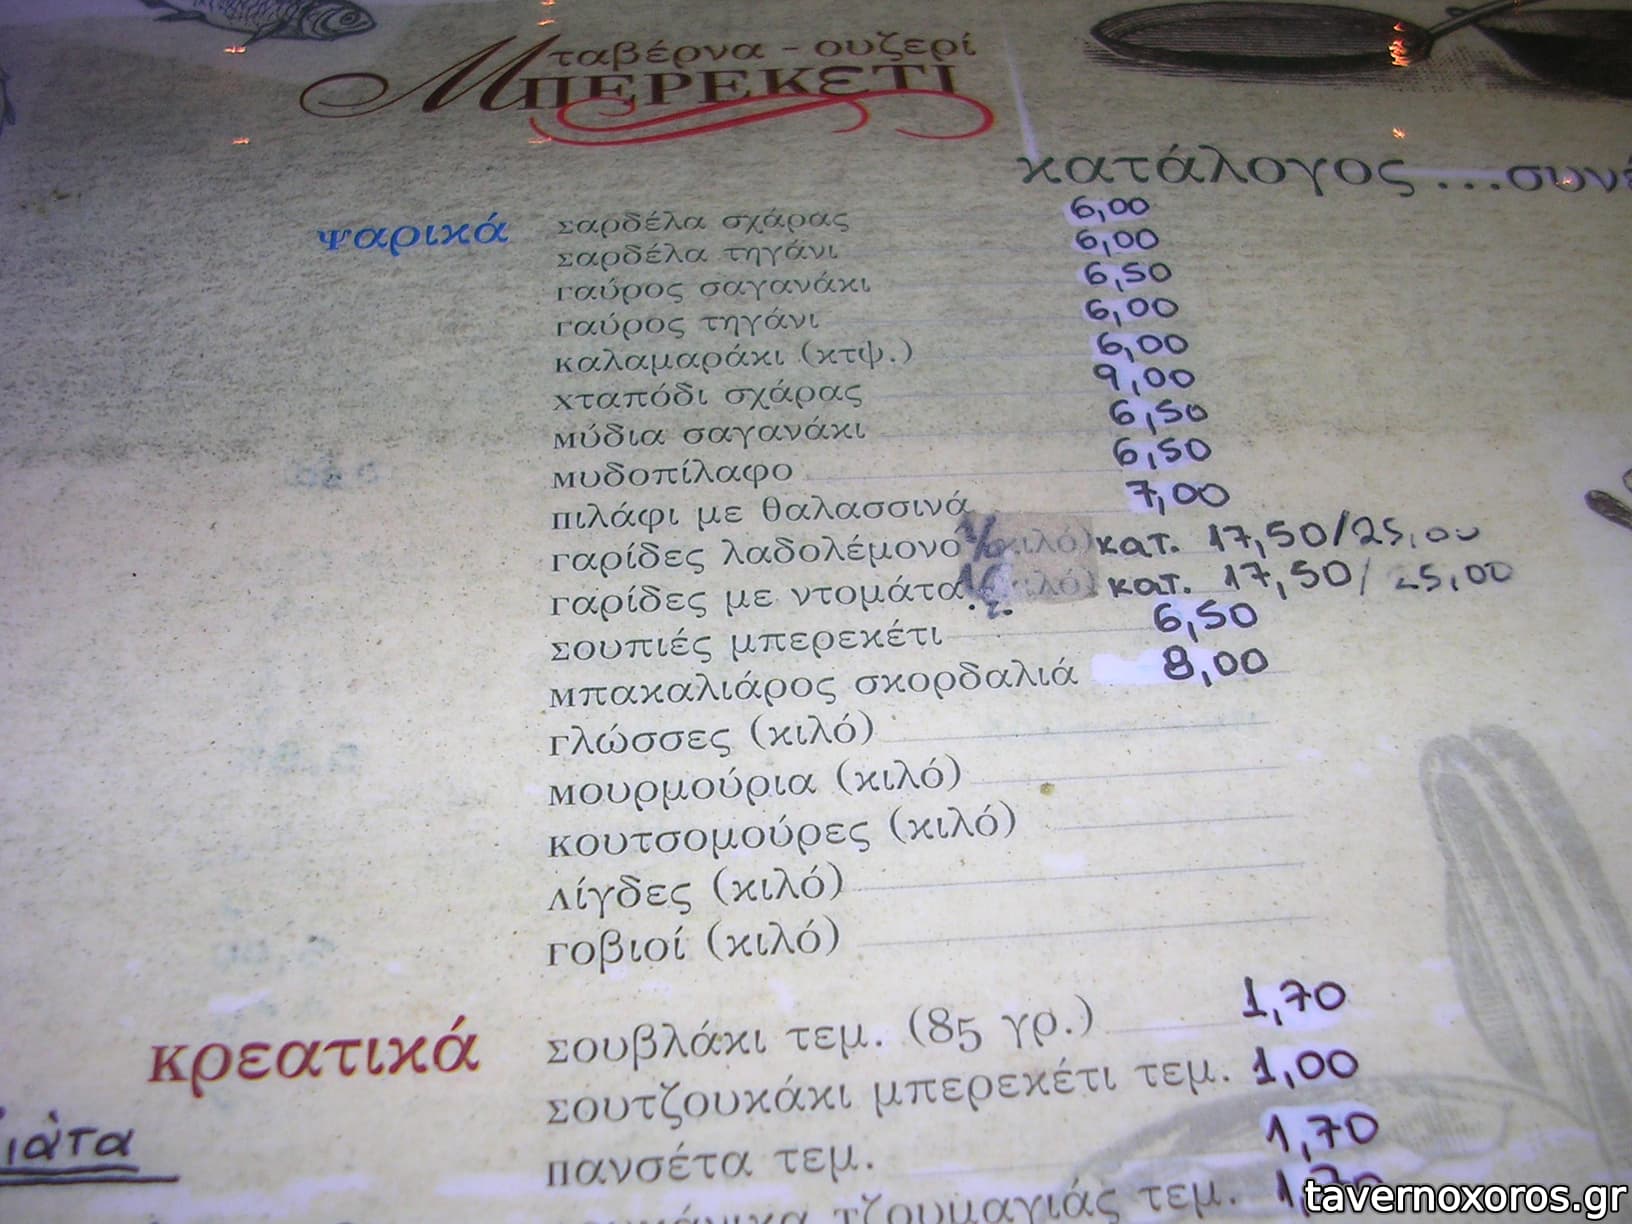 ταβέρνα - ουζερί
ΜΠΕΡΕΚΕΤΙ
κατάλογος ...συνέ
ψαρικά
σαρδέλα σχάρας 6,00
σαρδέλα τηγάνι 6,00
γαύρος σαγανάκι 6,50
γαύρος τηγάνι 6,00
καλαμαράκι (κτψ.) 6,00
χταπόδι σχάρας 9,00
μύδια σαγανάκι 6,50
μυδοπίλαφο 6,50
πιλάφι με θαλασσινά 7,00
γαρίδες λαδολέμονο κιλό) κατ. 17,50/25,00
γαρίδες με ντομάτα κιλό) κατ. 17,50/25,00
σουπιές μπερεκέτι 6,50
μπακαλιάρος σκορδαλιά 8,00
γλώσσες (κιλό)
μουρμούρια (κιλό)
κουτσομούρες (κιλό)
λίγδες (κιλό)
γοβιοί (κιλό)
κρεατικά
σουβλάκι τεμ. (85 γρ.) 1,70
σουτζουκάκι μπερεκέτι τεμ. 1,00
πανσέτα τεμ. 1,70
τζουμαγιάς τεμ. 1,70
tavernoxoros.gr